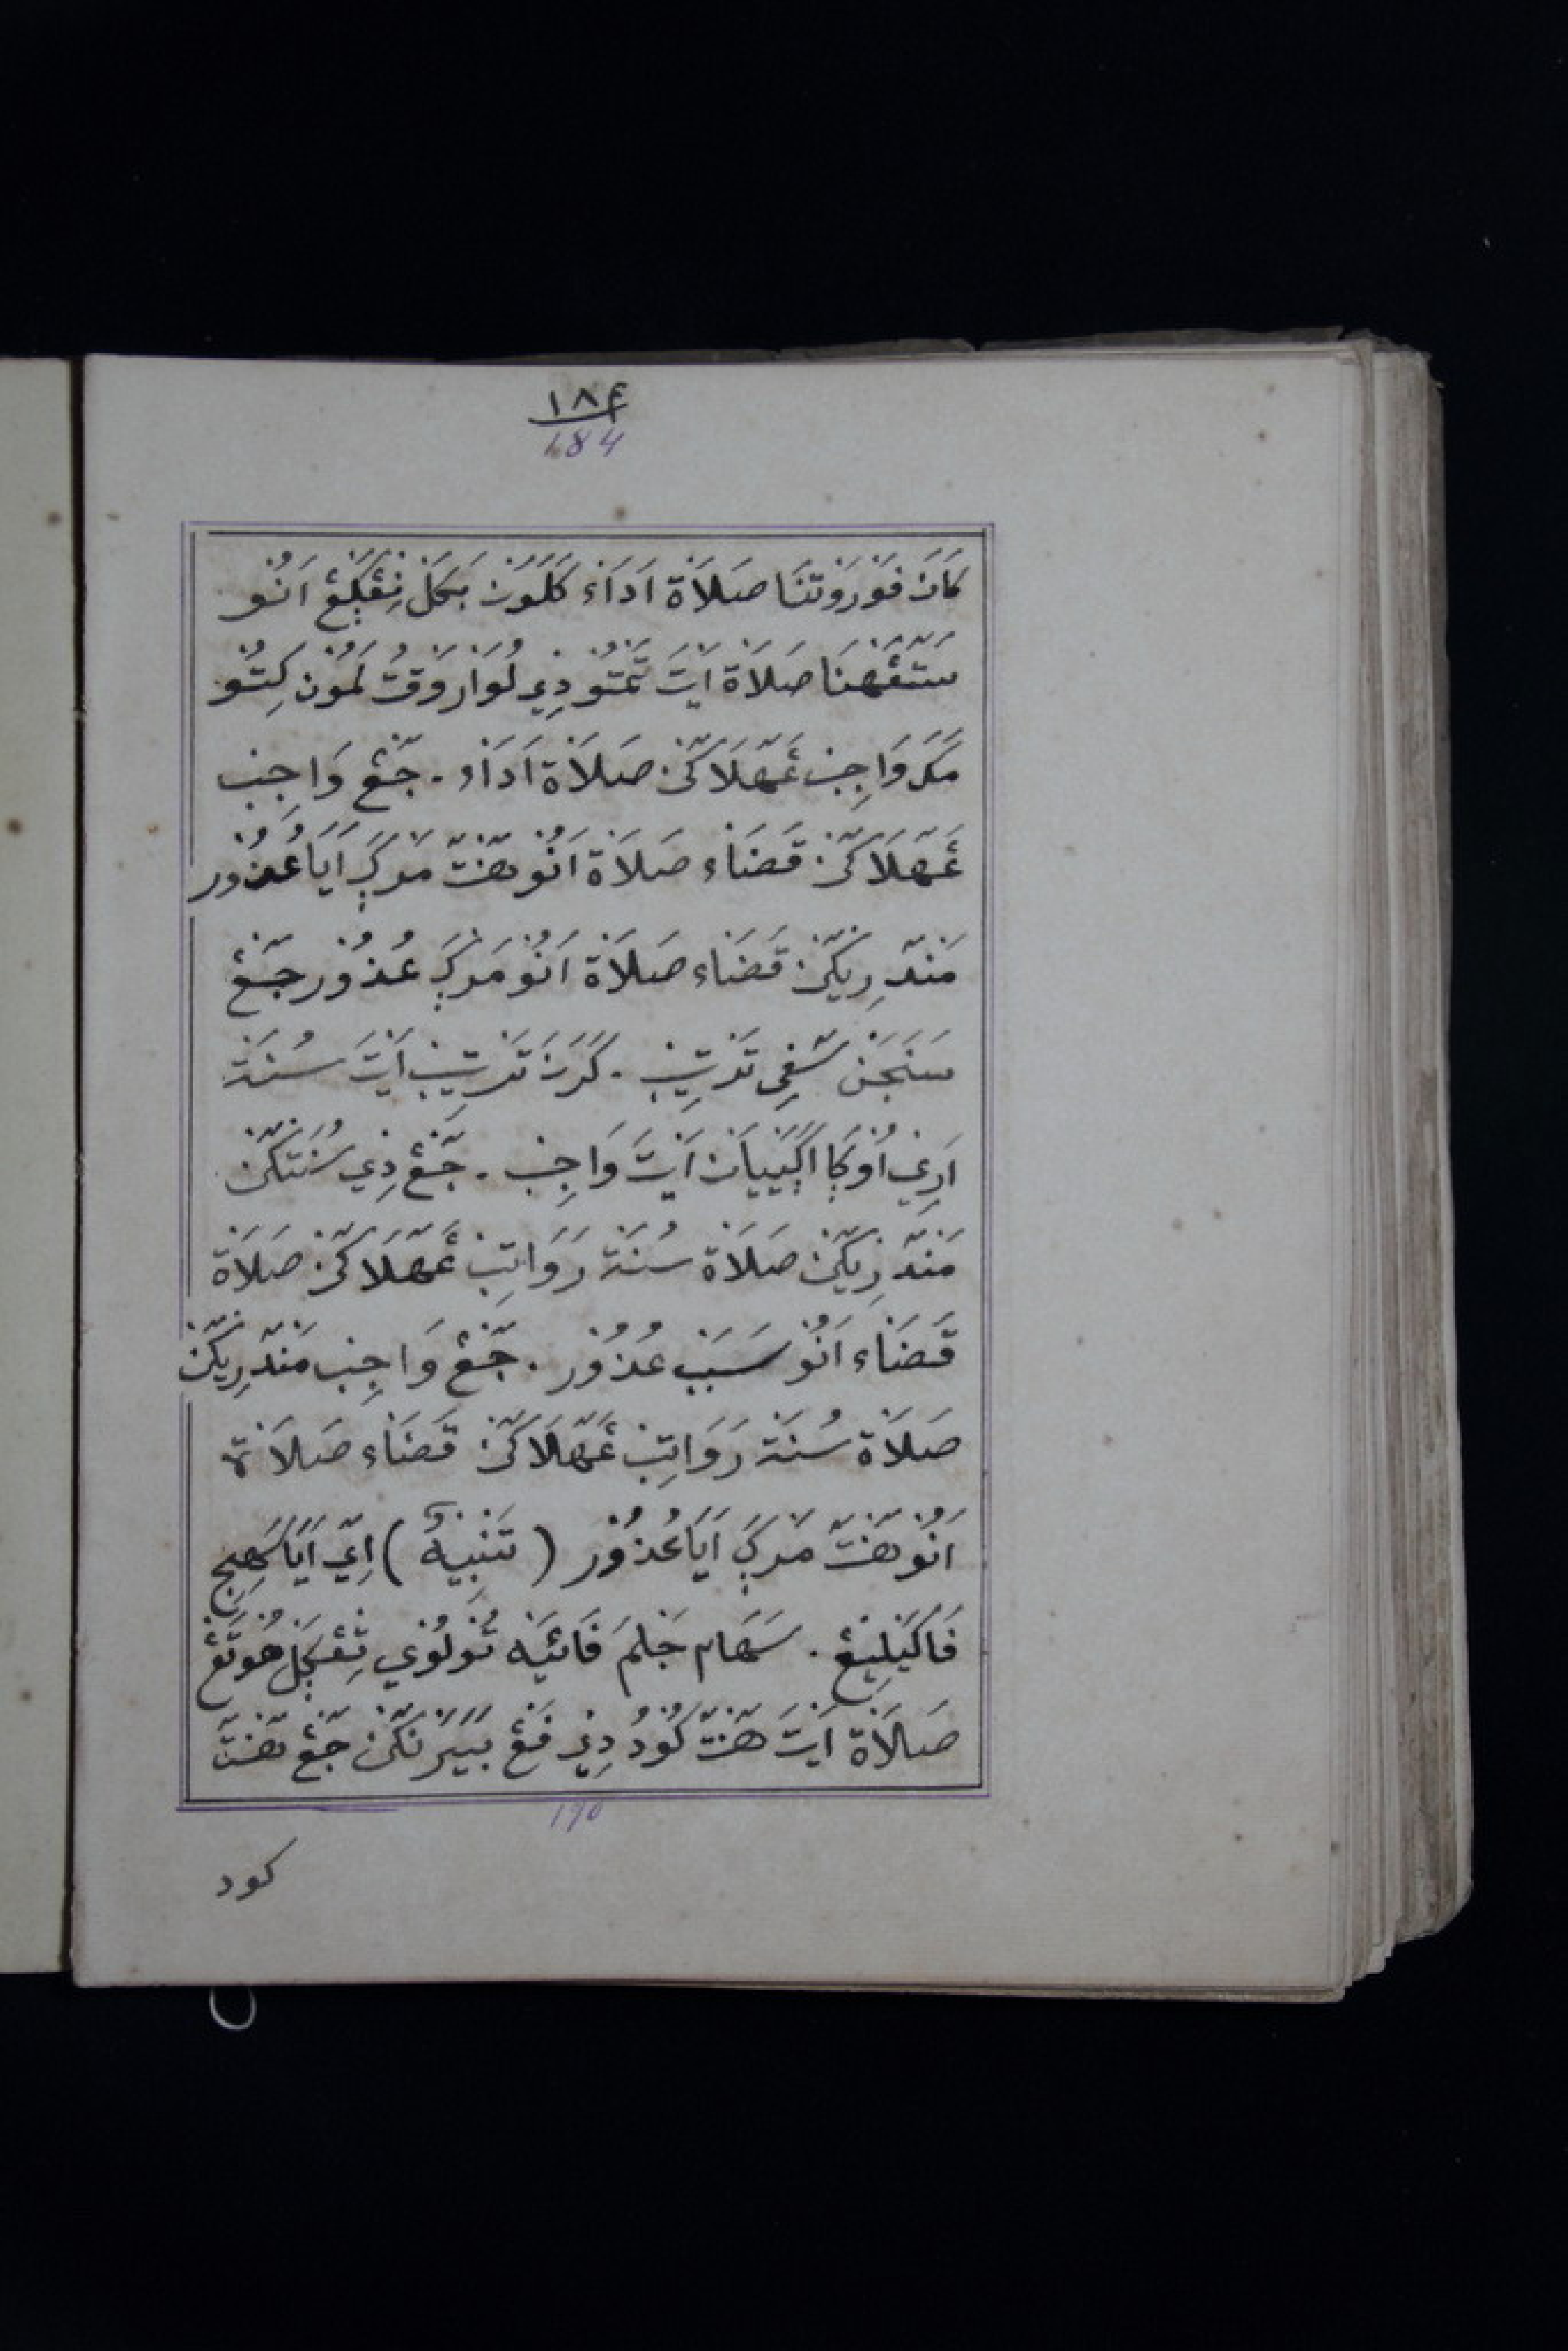 ١٨٤
184
كَانَ فَوْرَوْتنَا صَلَاة اَدَاء كَلَوَن بَكَل نِڠْݢَلڠْ اَنُو
سَتڠَهنَا صَلَاة اَيْتَ تَمْتُوْ دِي لُوَار وَقْتُ لَمُوْن كِتُو
مَكَ وَاجِب ڠَهَلَاكَن صَلَاة اَدَاء . جَڠْ وَاجِب
ڠَهَلَاكَن قَضَاء صَلَاة اَنُوْ هَنْتَ مَرݢَ اَيَا عُذُوْر
مَنْدَرِيكَن قَضَاء صَلَاة اَنُوْ مَرݢَ عُذُوْر جَڠْ
سَنَجَن تَرْتِيْب . كَرَنَ تَرْتِيْب اَيْتَ سُنَة
وَاجِب . جَڠْ دِي سُنَتكَن
مَنْدَرِيكَن صَلَاة سُنَة رَوَاتِب ڠَهَلَاكَن صَلَاة
قَضَاء اَنُوْ سَبَب عُذُوْر . جَڠْ وَاجِب مَنْدَرِيكَن
صَلَاة سُنَة رَوَاتِب ڠَهَلَاكَن قَضَاء صَلَاة
اَنُوْ هَنْتَ مَرݢَ اَيَا عُذُوْر ( تَنْبِيْهٌ ) اِيَ اَيَا سَهِجِ
فَاكَيَلِيڠْ . سَهَام جَلمَ فَائيَه نُوْلُوْي نِڠْݢَل هُوْتَڠْ
صَلَاة اَيْتَ هَنْتَ كُوْدُ دِي فَڠْ بَيَرَنكَن جَڠْ هَنْتَ
190
كود